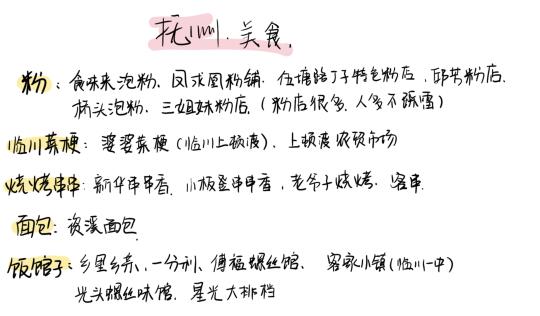 抚州美食.
粉：食味来泡粉、凤求凰粉铺、伍塘路丁子特色粉店,邱芳粉店、
桥头泡粉、三姐妹粉店、(粉店很多,人多不踩雷)
临川菜梗：婆婆菜梗(临川上顿渡)、上顿渡农贸市场
烧烤串串：新华串串香、小板凳串串香,老爷子烧烤、客串.
面包：资溪面包
饭馆子：乡里乡亲、一分利、傅福螺丝馆、客家小镇(临川一中)
光头螺丝味馆、星光大排档